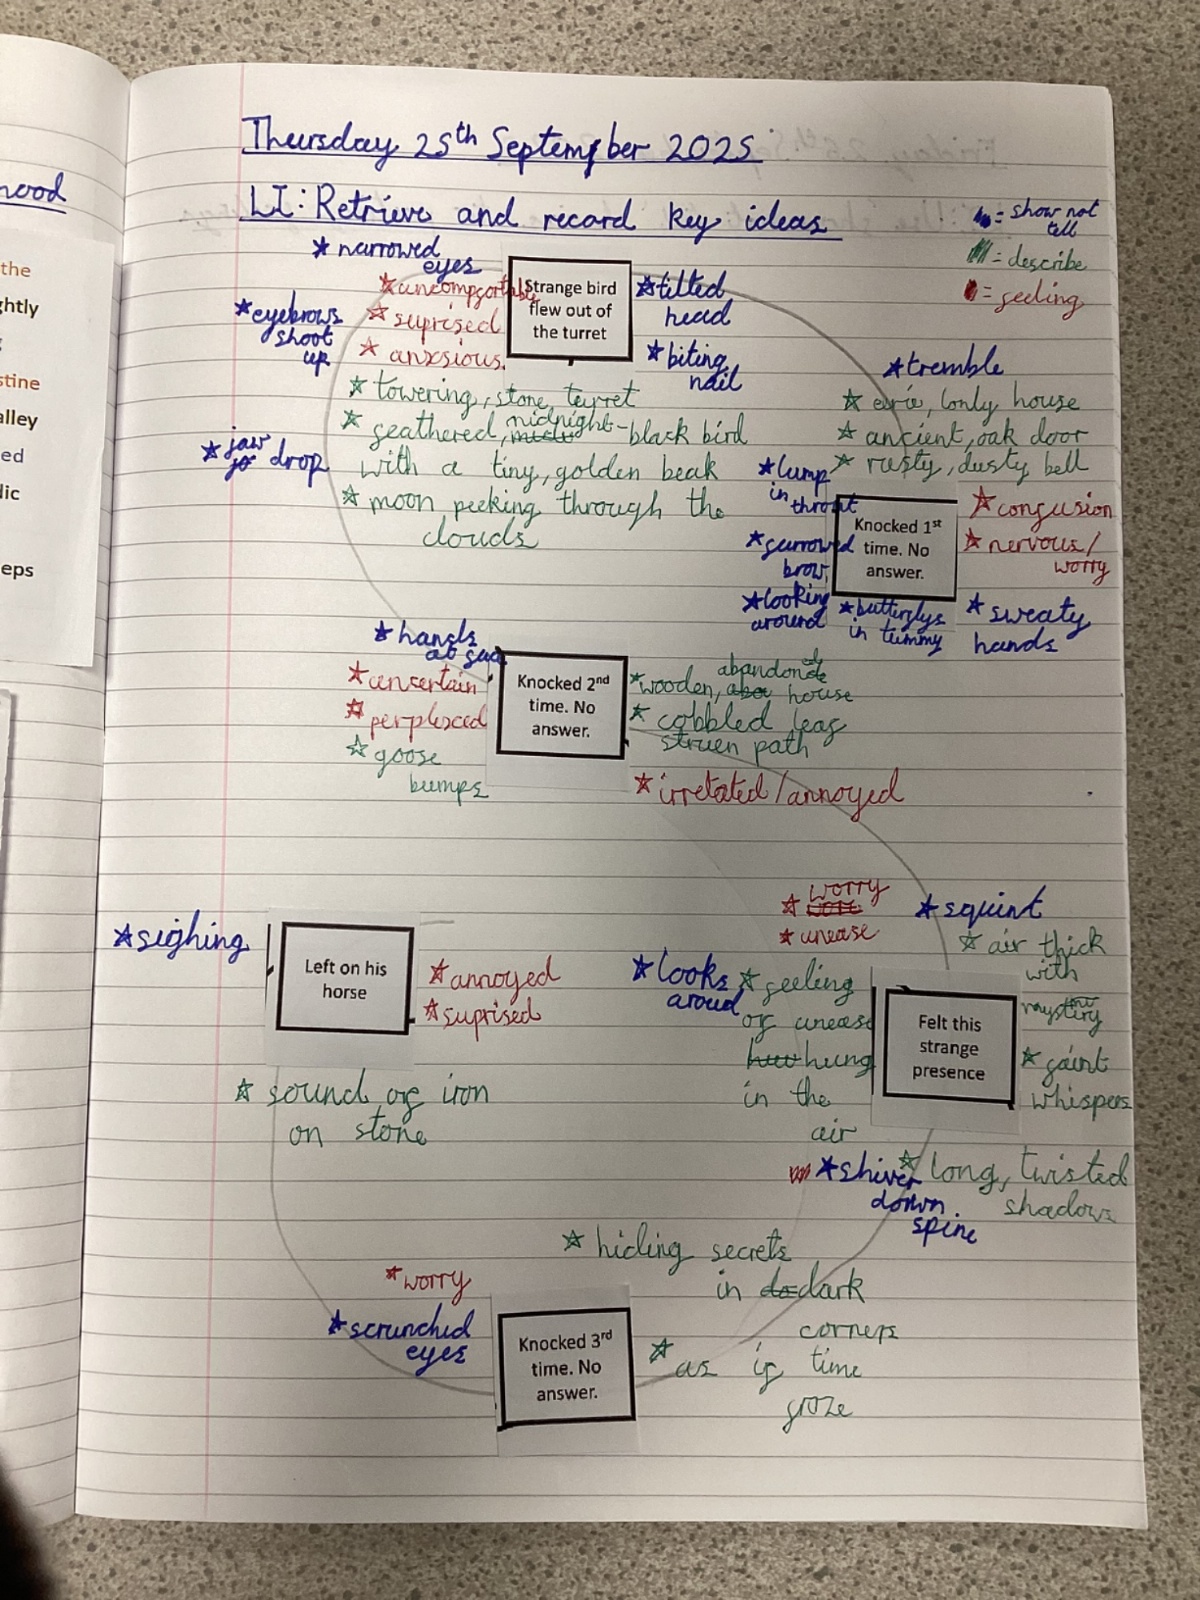 Thursday 25th September 2025
LI: Retrieve and record key ideas
= show not
tell
= describe
= feeling
nood
the
ghtly
stine
alley
ed
dic
eps
narrowed
eyes
uncomfortable
suprised
anxsious
eyebrows
shoot
up
jaw
drop
Strange bird
flew out of
the turret
tilted
head
biting
nail
towering, stone, turret
feathered, midnight-black bird
with a tiny, golden beak
moon peeking through the
clouds
tremble
eirie, lonly house
ancient, oak door
rusty, dusty bell
lump
in throat
furrowed
brow
looking
around
Knocked 1st
time. No
answer.
confusion
nervous/
worry
butterflys
in tummy
sweaty
hands
hands
unsertain
perplexed
goose
bumps
Knocked 2nd
time. No
answer.
wooden, abandonde house
cobbled leaf
struen path
irretated/annoyed
worry
unease
squint
air thick
with
looks
aroud
feeling
of unease
hung
in the
air
Felt this
strange
presence
faint
whispers
shiver
down
spine
long, twisted
shadows
sighing
Left on his
horse
annoyed
suprised
sound of iron
on stone
hiding secrets
in dark
corners
worry
scrunched
eyes
Knocked 3rd
time. No
answer.
as if time
froze